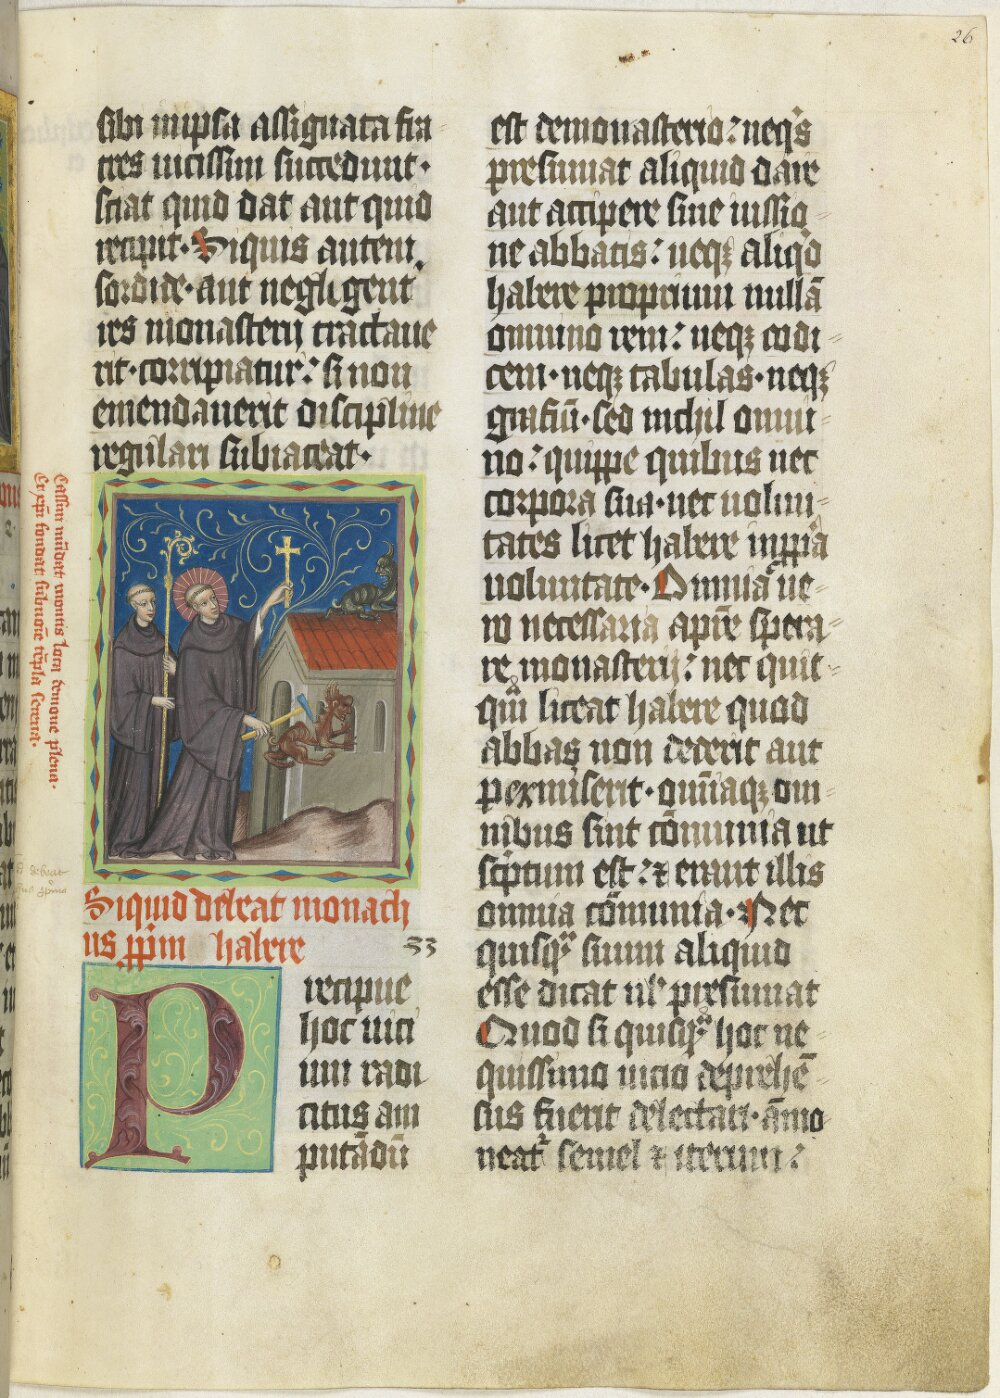 26
sibi in ip̄sa assignata fra
tres uicissim succedunt·
sciat quid dat aut quid
recipit· Siquis autem
sordide· aut negligent
res monasterij tractaue
rit· corripiatur: si non
emendauerit discipline
regulari subiaceat·
Cassini mūdat montis loca demone plena·
Et xpī fundat subuore tēpla serena·
Siquid debeat monach
us ꝓprium habere 33
Precipue
hoc uici
um radi
citus am
putādū
est demonasterio: neqs
presumat aliquid dare
aut accipere sine iussio
ne abbatis: neqꝫ aliqd
habere proprium nullā
omnino rem: neqꝫ codi
cem· neqꝫ tabulas· neqꝫ
grafiū· sed nichil omni
no: quippe quibus nec
corpora sua· nec uolun
tates licet habere in ꝓpria
uoluntate· Omnia ue
ro necessaria a patre spera
re monasterij: nec quic
qm̄ liceat habere quod
abbas non dederit aut
permiserit· omīaqꝫ om
nibus sint cōmunia ut
scptum est: ⁊ erant illis
omnia cōmunia· Nec
quisqᷓ suum aliquid
esse dicat ul' presumat
Quod si quisqᷓ hoc ne
quissimo uicio deprehē
sus fuerit delectari· āmo
neatʳ semel ⁊ iterum: